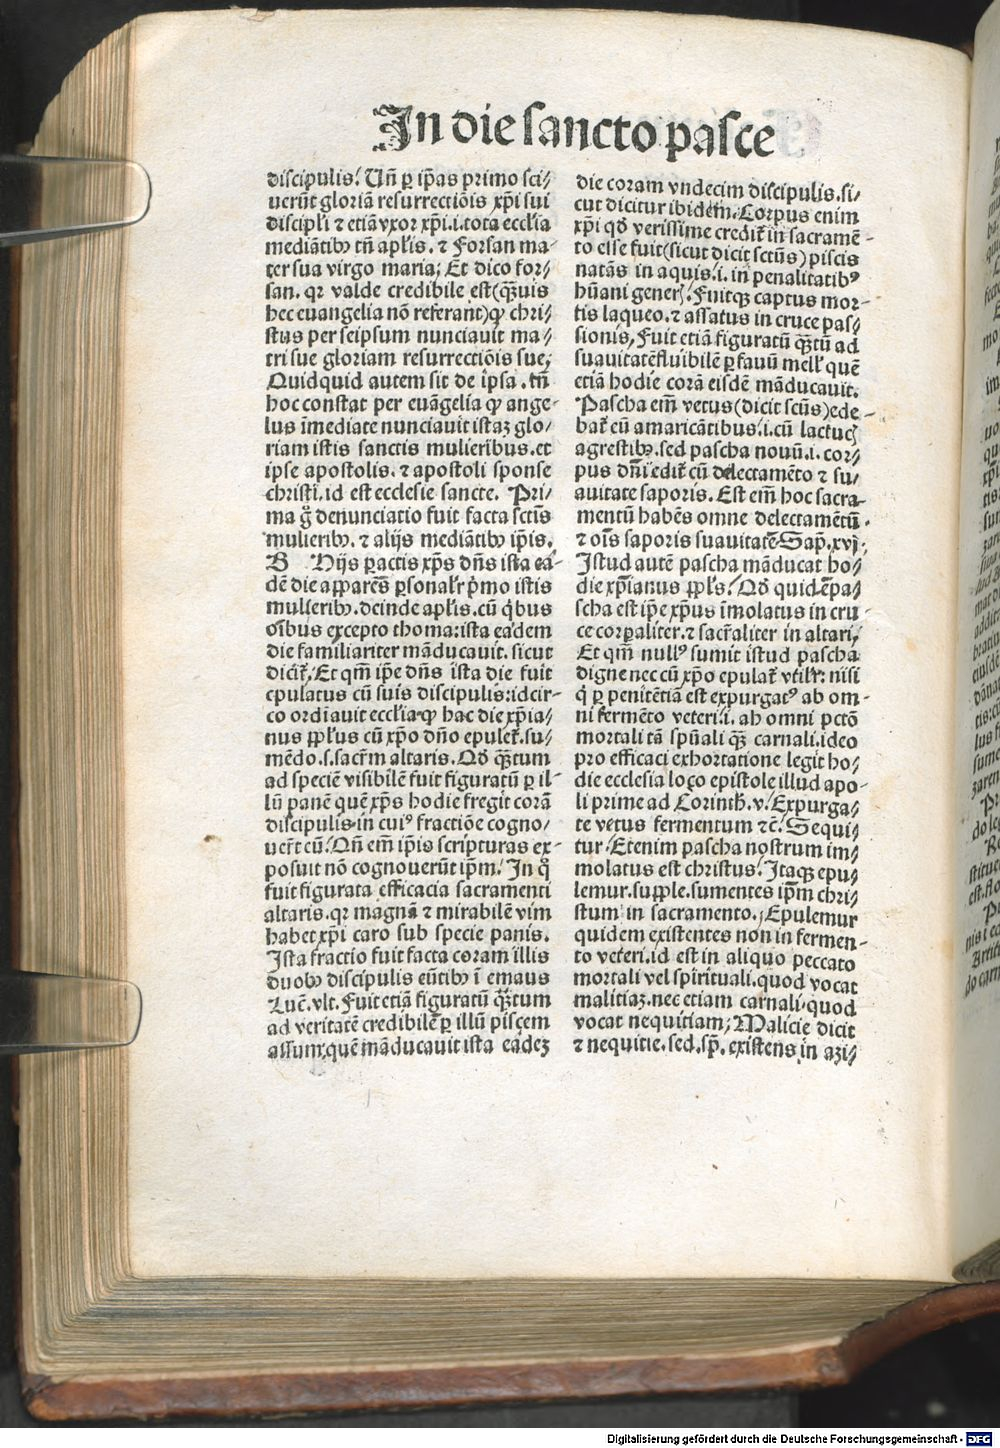 In die sancto pasce
discipulis. Uñ ꝑ ip̃as primo sci⸗
uerũt gloriã resurrectiõis xp̃i sui
discipl̃i ⁊ etiã vxor xp̃i.i.tota eccl̃ia
mediãtibꝰ tñ apl̃is. ⁊ Forsan ma⸗
ter sua virgo maria; Et dico for⸗
san. qꝛ valde credibile est(qᷓ̃uis
hec euangelia nõ referant)ꝙ chri⸗
stus per seipsum nunciauit ma⸗
tri sue gloriam resurrectiõis sue;
Quidquid autem sit de ip̃sa. tñ
hoc constat per euãgelia ꝙ ange⸗
lus ĩmediate nunciauit istaꝫ glo⸗
riam istis sanctis mulieribus.et
ipse apostolis. ⁊ apostoli sponse
christi.id est ecclesie sancte. Pri⸗
ma gͦ denunciatio fuit facta sctĩs
mulieribꝰ. ⁊ alijs mediãtibꝰ ip̃is.
B Hijs ꝑactis xp̃s dñs ista ea⸗
dẽ die apparẽs ꝑsonal'r pͥmo istis
mulieribꝰ. deinde apl̃is. cũ qͥbus
oĩbus excepto thoma: ista eadem
die familiariter mãducauit. sicut
dicit̃. Et qm̃ ip̃e dñs ista die fuit
epulatus cũ suis discipulis: idcir⸗
co ordiauit eccl̃ia ꝙ hac die xp̃ia⸗
nus ppl̃us cũ xp̃o dño epulet̃. su⸗
mẽdo.s.sacr̃m altaris. Qd̓ qᷓ̃tum
ad speciẽ visibilẽ fuit figuratũ ꝑ il⸗
lũ panẽ quẽ xp̃s hodie fregit corã
discipulis in cuiꝰ fractiõe cogno⸗
uer̃t eũ. Qñ em̃ ip̃is scripturas ex⸗
posuit nõ cognouerũt ip̃m. In qͦ
fuit figurata efficacia sacramenti
altaris. qꝛ magnã ⁊ mirabilẽ vim
habet xp̃i caro sub specie panis.
Ista fractio fuit facta coram illis
duobꝰ discipulis eũtibꝰ ĩ emaus
Luc̃. vlt. Fuit etiã figuratũ qᷓ̃tum
ad veritatẽ credibilẽ ꝑ illũ piscem
assum, quẽ mãducauit ista eadeꝫ
die coram vndecim discipulis. si⸗
cut dicitur ibidẽm. Corpus enim
xp̃i qd̓ verissime credit̃ in sacramẽ⸗
to esse fuit(sicut dicit sctũs) piscis
natãs in aquis.i. in penalitatibꝰ
hũani generꝭ. Fuitqꝫ captus mor⸗
tis laqueo. ⁊ assatus in cruce pas⸗
sionis, Fuit etiã figuratũ qᷓ̃tũ ad
suauitatẽ fluibilẽ ꝑ fauũ mell' quẽ
etiã hodie corã eisdẽ mãducauit.
Pascha em̃ vetus(dicit scũs)ede⸗
bat̃ cũ amaricãtibus.i.cũ lactucꝭ
agrestibꝰ. sed pascha nouũ.i. cor⸗
pus dñi edit̃ cũ delectamẽto ⁊ su⸗
auitate saporis. Est em̃ hoc sacra⸗
mentũ habẽs omne delectamẽtũ.
⁊ oĩs saporis suauitatẽ Sap̃.xvj.
Istud autẽ pascha mãducat ho⸗
die xp̃ianus ppl̃s. Qd̓ quidẽ pa⸗
scha est ip̃e xp̃us ĩmolatus in cru⸗
ce corꝑaliter. ⁊ sacr̃aliter in altari,
Et qm̃ nullꝰ sumit istud pascha
digne nec cũ xp̃o epulat̃ vtil'r: nisi
qͥ ꝑ penitẽtiã est expurgatꝰ ab om⸗
ni fermẽto veteri.i. ab omni pctõ
mortali tã spũali qᷓ̃ carnali. ideo
pro efficaci exhortatione legit ho⸗
die ecclesia loco epistole illud apo⸗
li prime ad Corinth̃. v. Expurga⸗
te vetus fermentum ⁊c̃. Sequi⸗
tur. Etenim pascha nostrum im⸗
molatus est christus. Itaqꝫ epu⸗
lemur. supple. sumentes ip̃m chri⸗
stum in sacramento. Epulemur
quidem existentes non in fermen⸗
to veteri. id est in aliquo peccato
mortali vel spirituali. quod vocat
malitiaꝫ. nec etiam carnali quod
vocat nequitiam; Malicie dicit
⁊ nequitie. sed. sp̃. existens in azi⸗
Digitalisierung gefördert durch die Deutsche Forschungsgemeinschaft - DFG